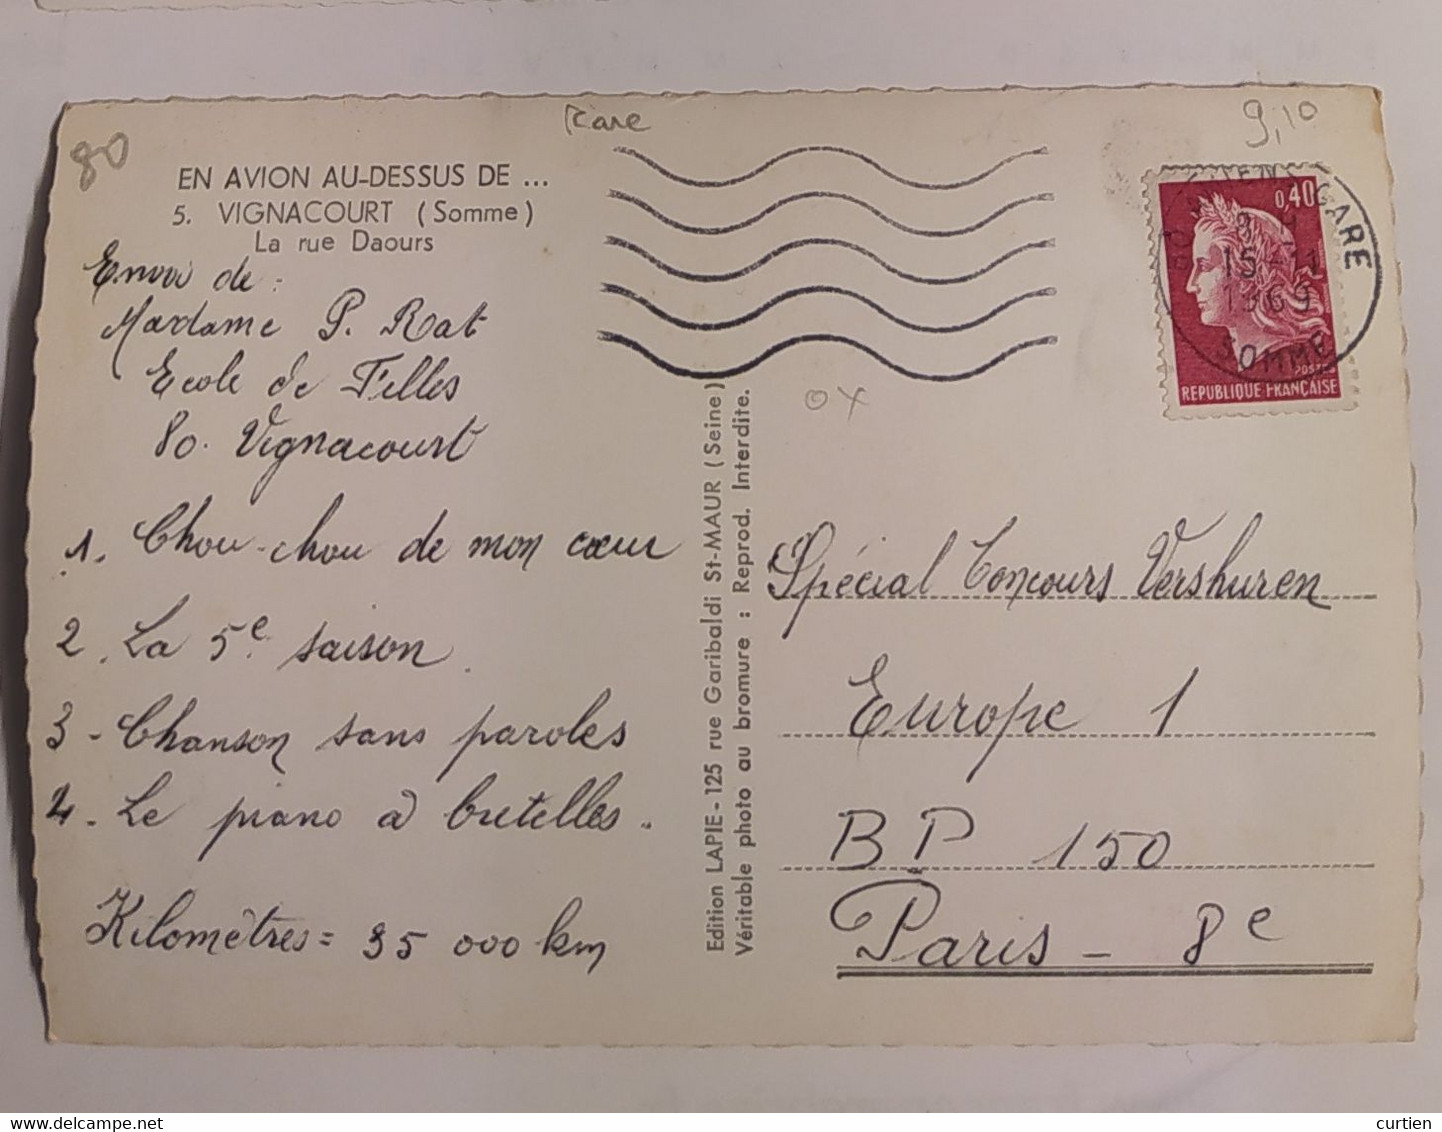 Rare
9,10
80
EN AVION AU-DESSUS DE ...
5. VIGNACOURT (Somme)
La rue Daours
Envoi de :
Madame P. Rat
Ecole de Filles
80. Vignacourt
1. Chou-chou de mon cœur
2. La 5e saison.
3 - Chanson sans paroles
4 - Le piano à bretelles.
Kilomètres = 35 000 km
Edition LAPIE - 125 rue Garibaldi St-MAUR (Seine)
Véritable photo au bromure : Reprod. Interdite.
OX
0,40
POSTES
REPUBLIQUE FRANÇAISE
GARE
15-11
1969
SOMME
Spécial Concours Vershuren
Europe 1
BP 150
Paris - 8e
curtien